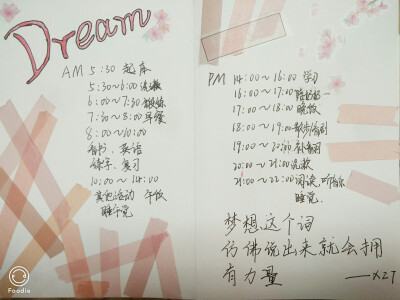 Dream
AM 5:30 起床
5:30~6:00 洗漱
6:00~7:30 锻炼
7:30~8:00 早餐
8:00~10:00
看书、英语
练字、复习
10:00~14:00
其他活动 午饭
睡午觉
PM 14:00~16:00 学习
16:00~17:00
17:00~18:00 晚饭
18:00~19:00 散步
19:00~20:00
20:00~21:00 洗漱
21:00~22:00 阅读、听音乐
睡觉.
梦想这个词
仿佛说出来就会拥
有力量
——XZT
Foodie